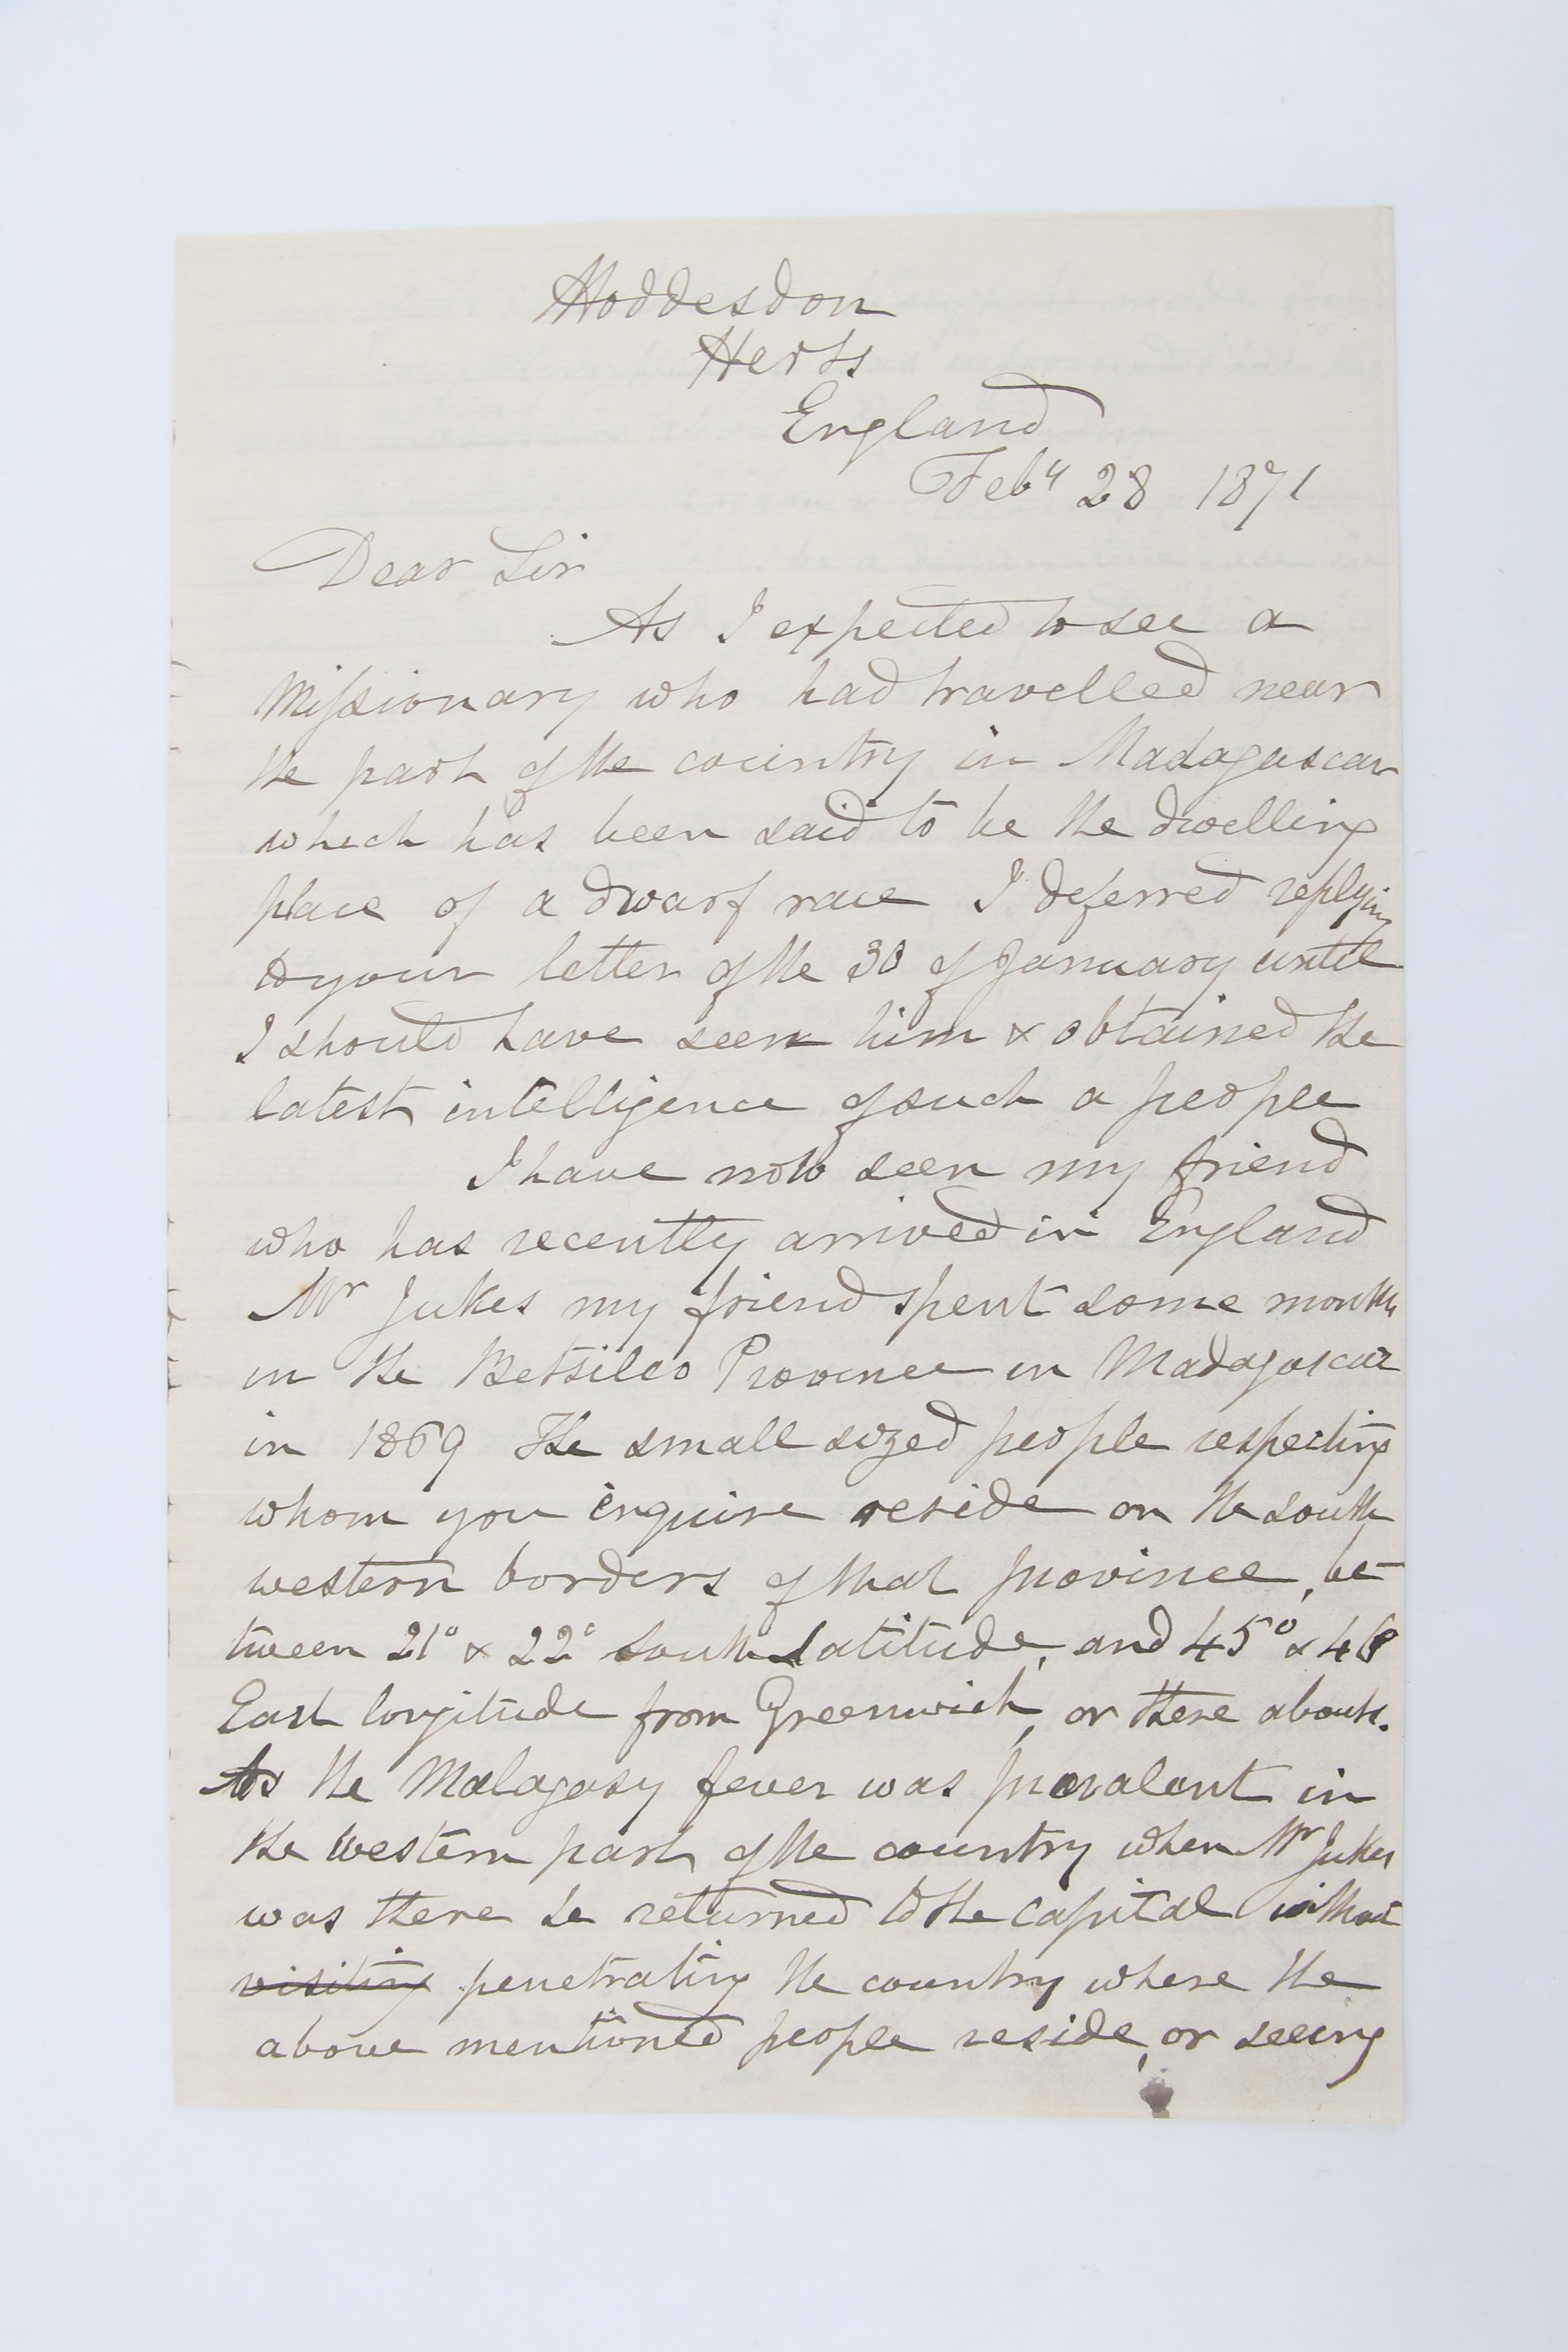 Hoddesdon
Herts
England
Feby 28 1871
Dear Sir
As I expected to see a
Missionary who had travelled near
the part of the country in Madagascar
which has been said to be the dwelling
place of a dwarf race I deferred replying
to your letter of the 30 of January until
I should have seen him & obtained the
latest intelligence of such a people
I have now seen my friend
who has recently arrived in England
Mr Jukes my friend spent some months
in the Betsileo Province in Madagascar
in 1869 The small sized people respecting
whom you enquire reside on the south
western borders of that province, be-
tween 21° & 22° south latitude, and 45° & 46
East longitude from Greenwich, or there abouts.
As the Malagasy fever was prevalent in
the western part of the country when Mr Jukes
was there he returned to the capital without
visiting penetrating the country where the
above mentioned people reside, or seeing